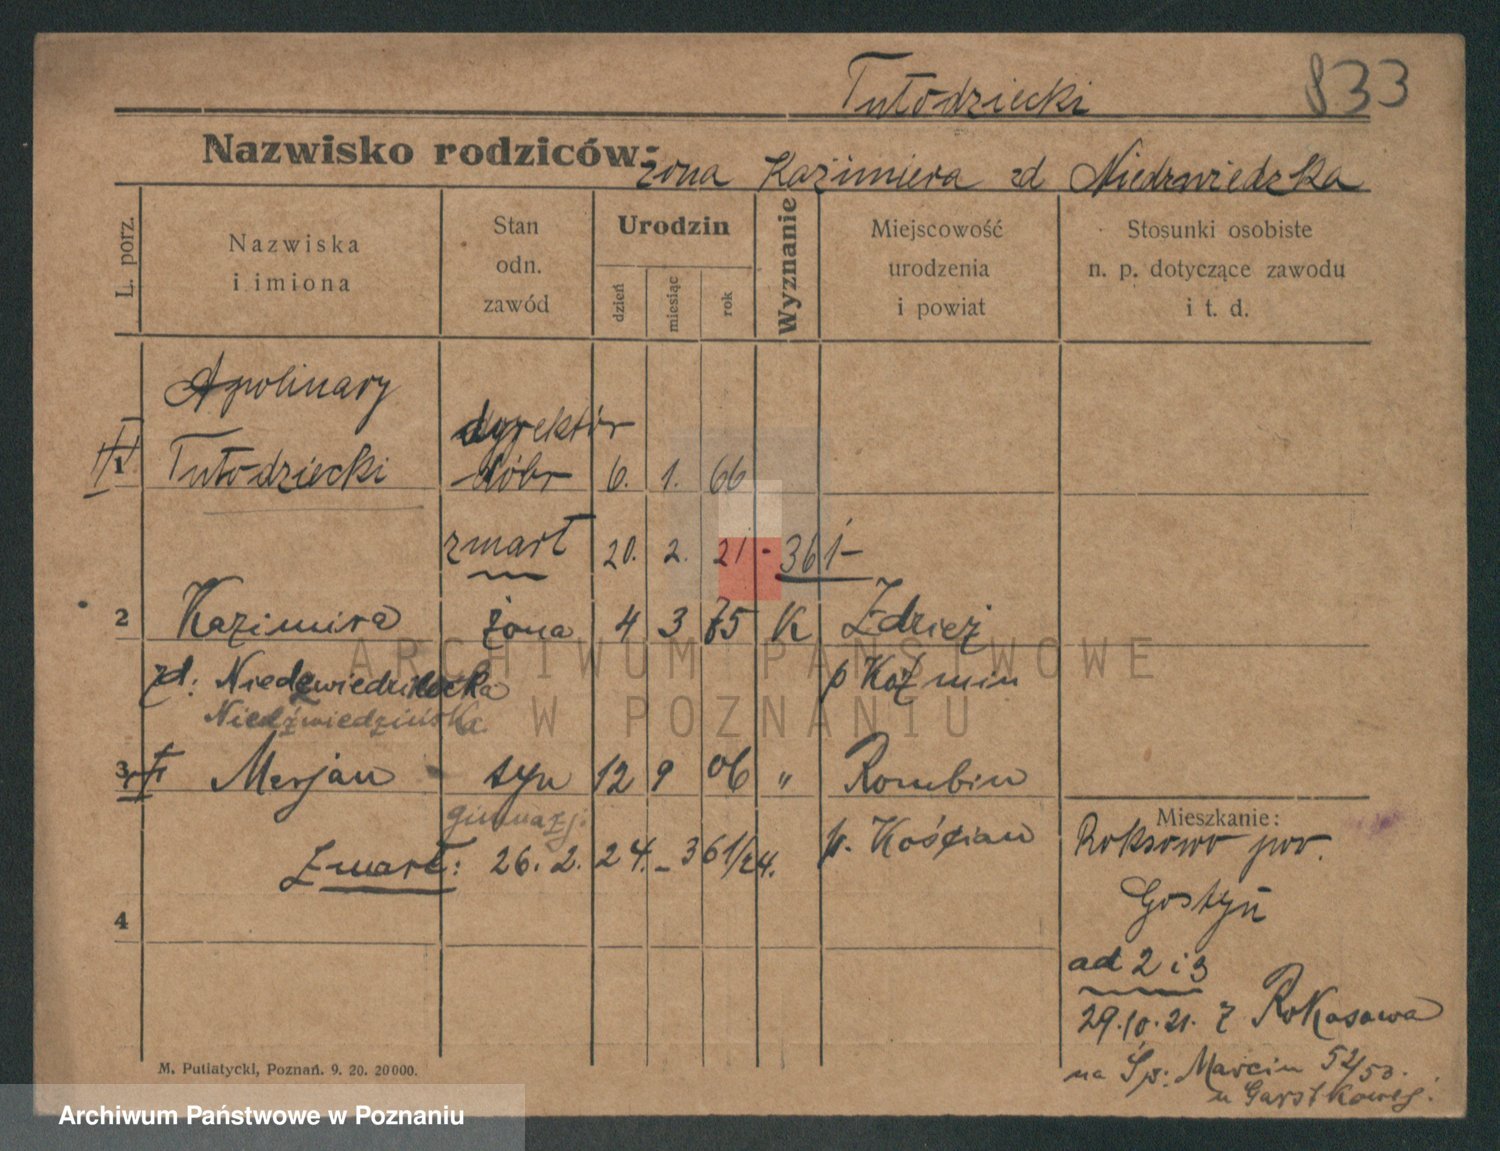 Tułodziecki 833
Nazwisko rodziców: żona Kaźimiera zd Niedzwiedzka
L. porz.
Nazwiska
i imiona
Stan
odn.
zawód
Urodzin
dzień
miesiąc
rok
Wyznanie
Miejscowość
urodzenia
i powiat
Stosunki osobiste
n. p. dotyczące zawodu
i t. d.
Apolinary
dyrektór
1 Tułodziecki dóbr 6. 1. 66
zmarł 20. 2. 21 - 361-
2 Kazimira żona 4 3 75 K Zdzież
zd: p Koźmin
Niedźwiedzińska
3 Merjan syn 12 9 06 " Rombin
gimnazj:
p. Kościan
Zmarł: 26. 2. 24. - 361/24.
4
Mieszkanie:
Roksowo pow.
Gostyń
ad 2 i 3
29.10.21. z Rokosowa
na Św: Marcin 52/53.
u Garstkowej.
M. Putiatycki, Poznań. 9. 20. 20000.
ARCHIWUM PAŃSTWOWE
W POZNANIU
Archiwum Państwowe w Poznaniu